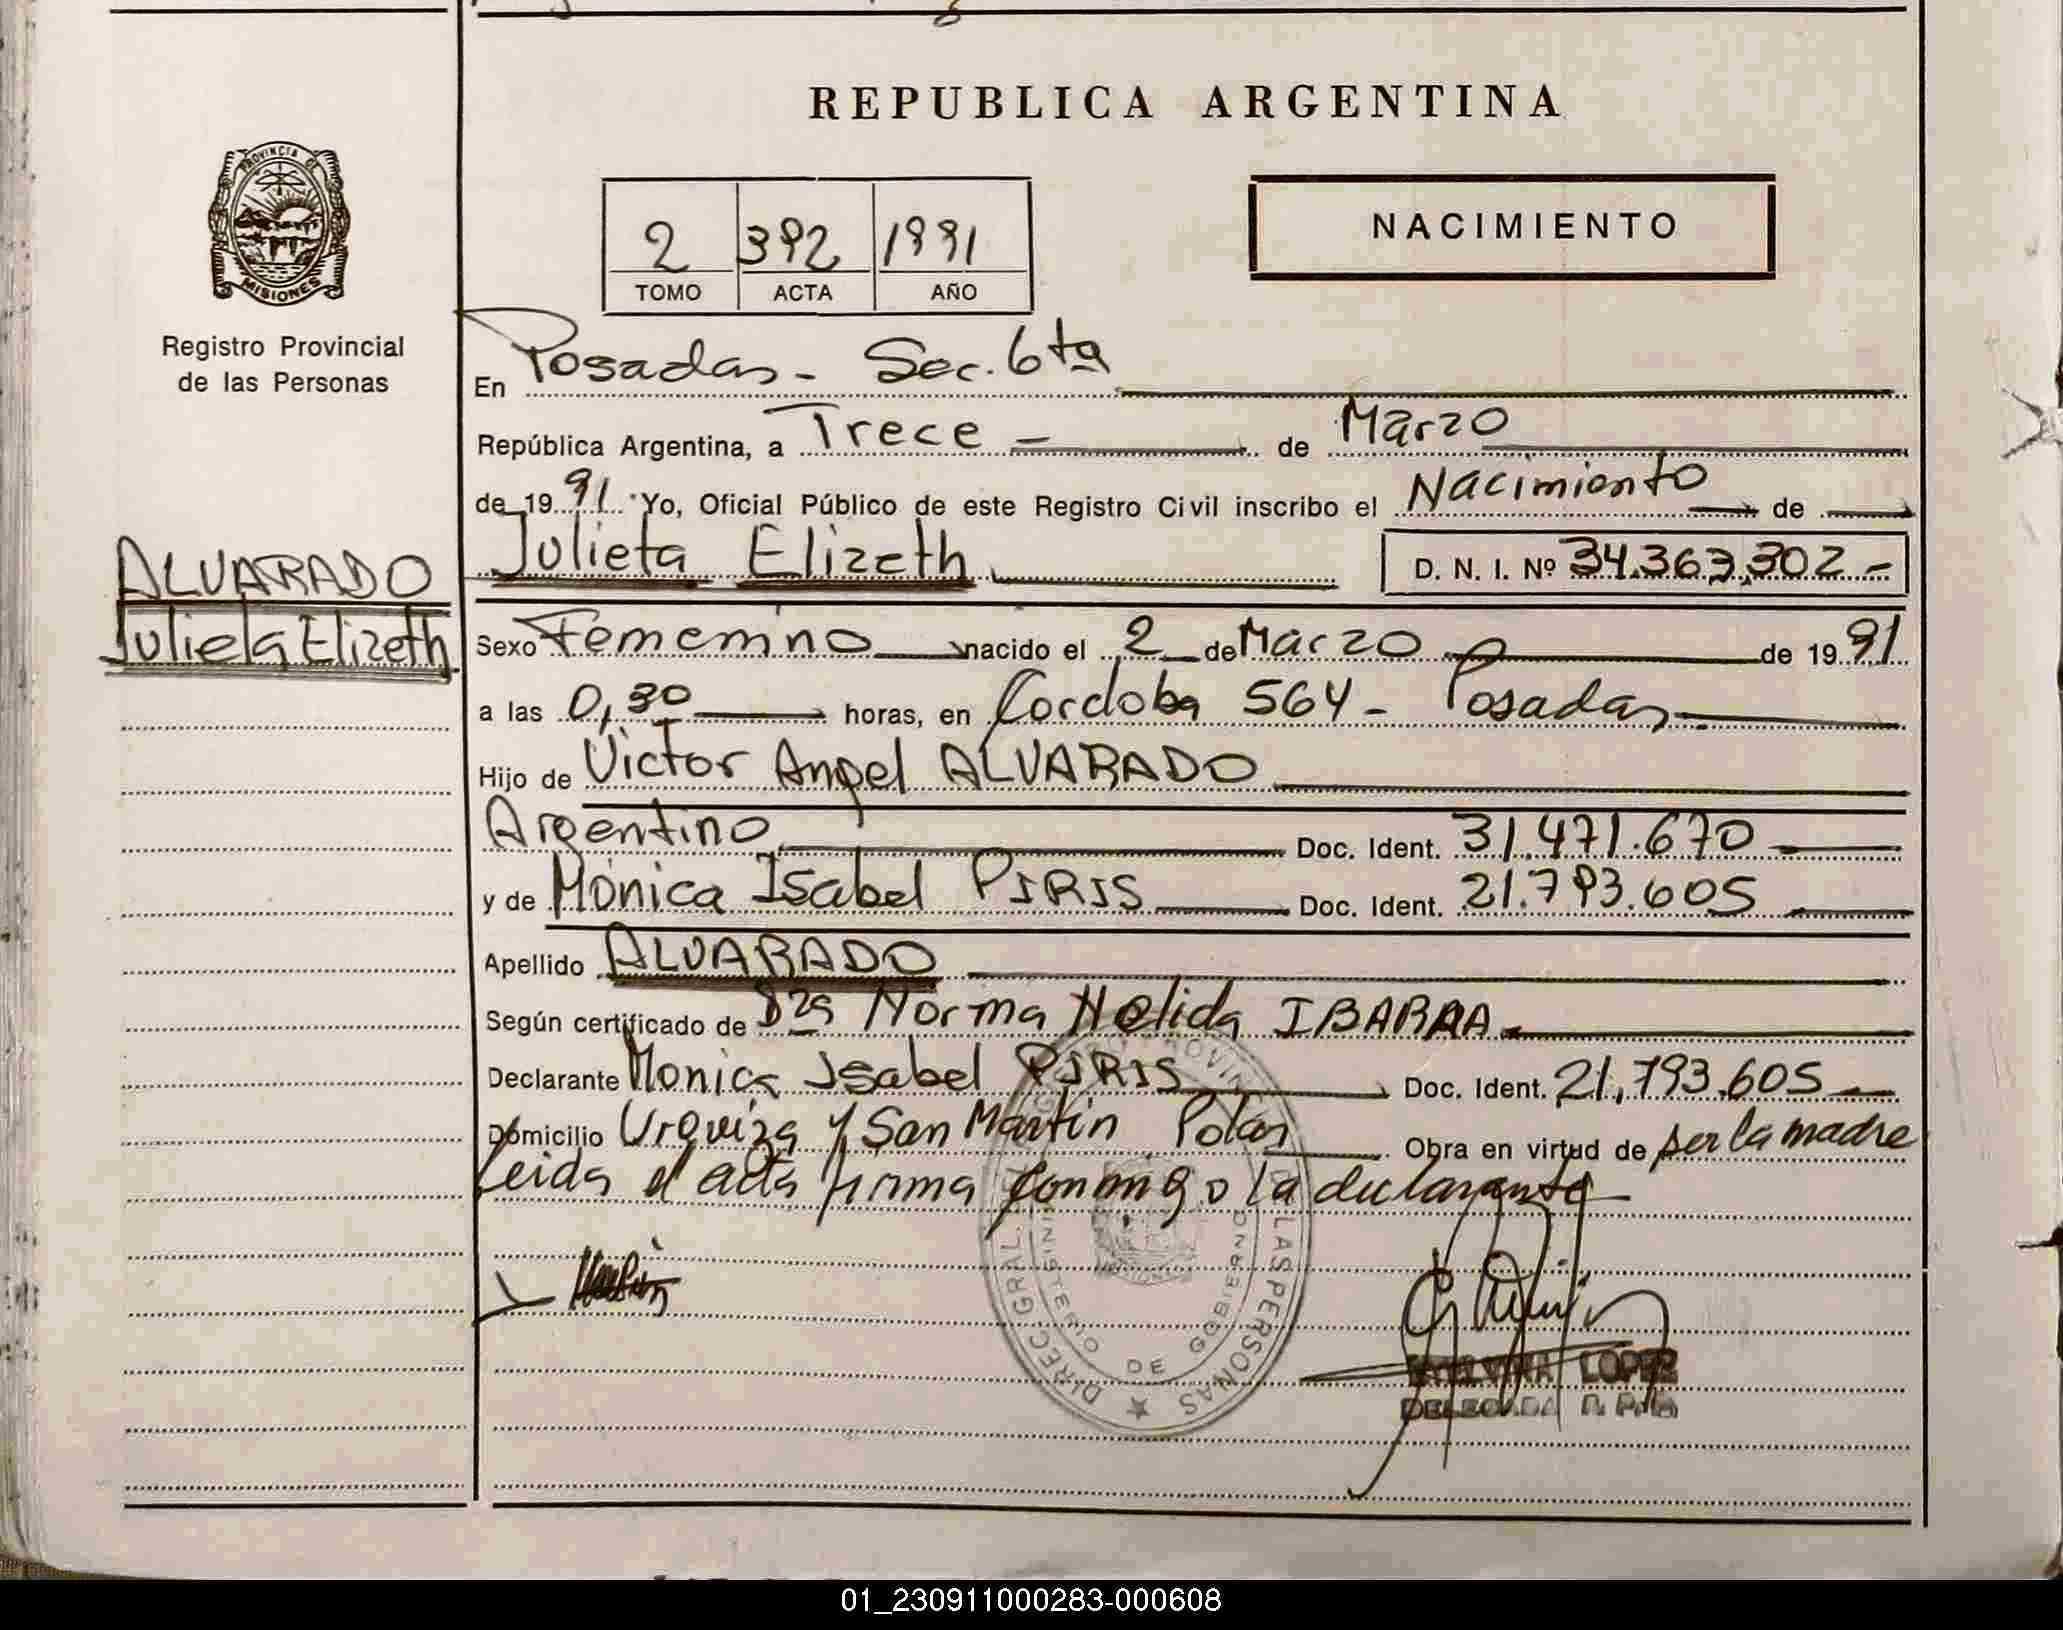 REPUBLICA ARGENTINA
PROVINCIA DE
MISIONES
Registro Provincial
de las Personas
2 392 1991
TOMO ACTA AÑO
NACIMIENTO
En Posadas - Sec. 6ta
República Argentina, a Trece de Marzo
de 1991 Yo, Oficial Público de este Registro Civil inscribo el Nacimiento de
Julieta Elizeth D. N. I. Nº 34.363.302.-
ALVARADO
Julieta Elizeth
Sexo Femenino nacido el 2 de Marzo de 1991
a las 0,30 horas, en Cordoba 564 - Posadas
Hijo de Victor Angel ALVARADO
Argentino Doc. Ident. 31.471.670
y de Mónica Isabel PIRIS Doc. Ident. 21.793.605
Apellido ALVARADO
Según certificado de Dra Norma Nelida IBARRA
Declarante Monica Isabel PIRIS Doc. Ident. 21.793.605
Domicilio Urquiza y San Martin Pdas Obra en virtud de ser la madre
Leida el acta firma conmigo la declarante
DIREC. GRAL. DEL REGISTRO PROVINCIAL DE LAS PERSONAS
MINISTERIO DE GOBIERNO
LOPEZ
DELEGADA
01_230911000283-000608